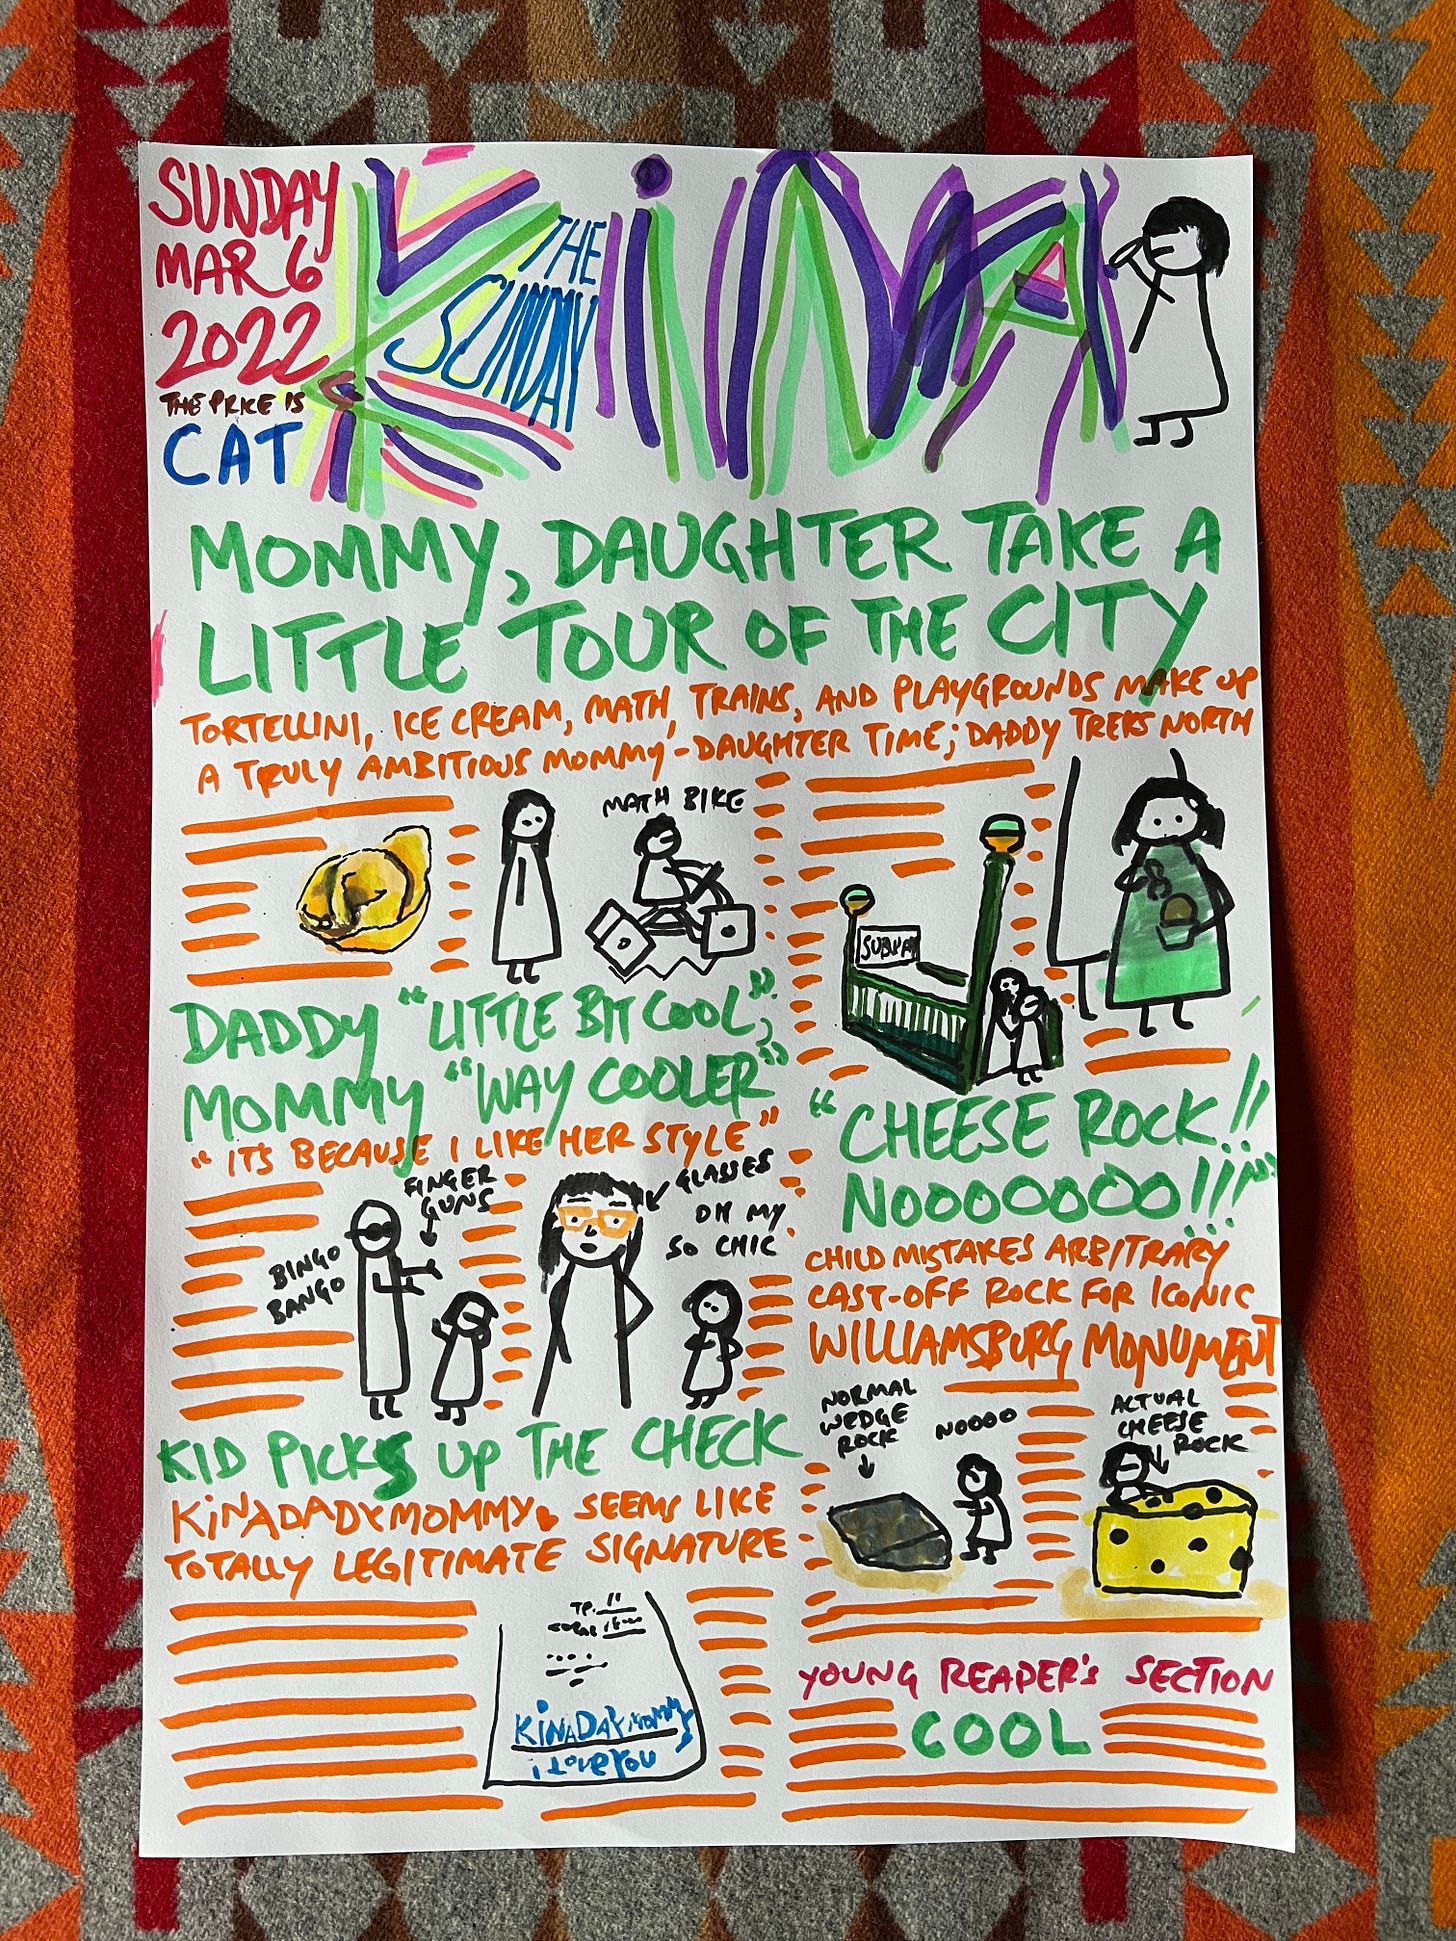 SUNDAY
MAR 6
2022
THE PRICE IS
CAT
THE
SUNDAY
KiNA
MOMMY, DAUGHTER TAKE A
LITTLE TOUR OF THE CITY
TORTELLINI, ICE CREAM, MATH, TRAINS, AND PLAYGROUNDS MAKE UP
A TRULY AMBITIOUS MOMMY-DAUGHTER TIME; DADDY TREKS NORTH
MATH BIKE
SUBWAY
DADDY "LITTLE BIT COOL";
MOMMY "WAY COOLER"
"ITS BECAUSE I LIKE HER STYLE"
FINGER
GUNS
BINGO
BANGO
GLASSES
OH MY
SO CHIC
"CHEESE ROCK!!
NOOOOOOOO!!!"
CHILD MISTAKES ARBITRARY
CAST-OFF ROCK FOR ICONIC
WILLIAMSBURG MONUMENT
NORMAL
WEDGE
ROCK
NOOOO
ACTUAL
CHEESE
ROCK
KID PICKS UP THE CHECK
KiNADADYMOMMY♥ SEEMS LIKE
TOTALLY LEGITIMATE SIGNATURE
KiNADAYMOMMY
i LOVE YOU
YOUNG READER'S SECTION
COOL